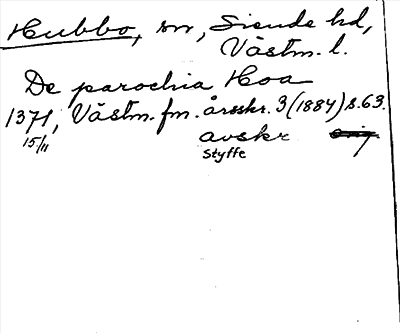 Hubbo, sn, Siende hd,
Västm. l.
De parochia Hoa
1371, Västm. fm. årsskr. 3 (1884) s. 63.
15/11 avskr orig
Styffe